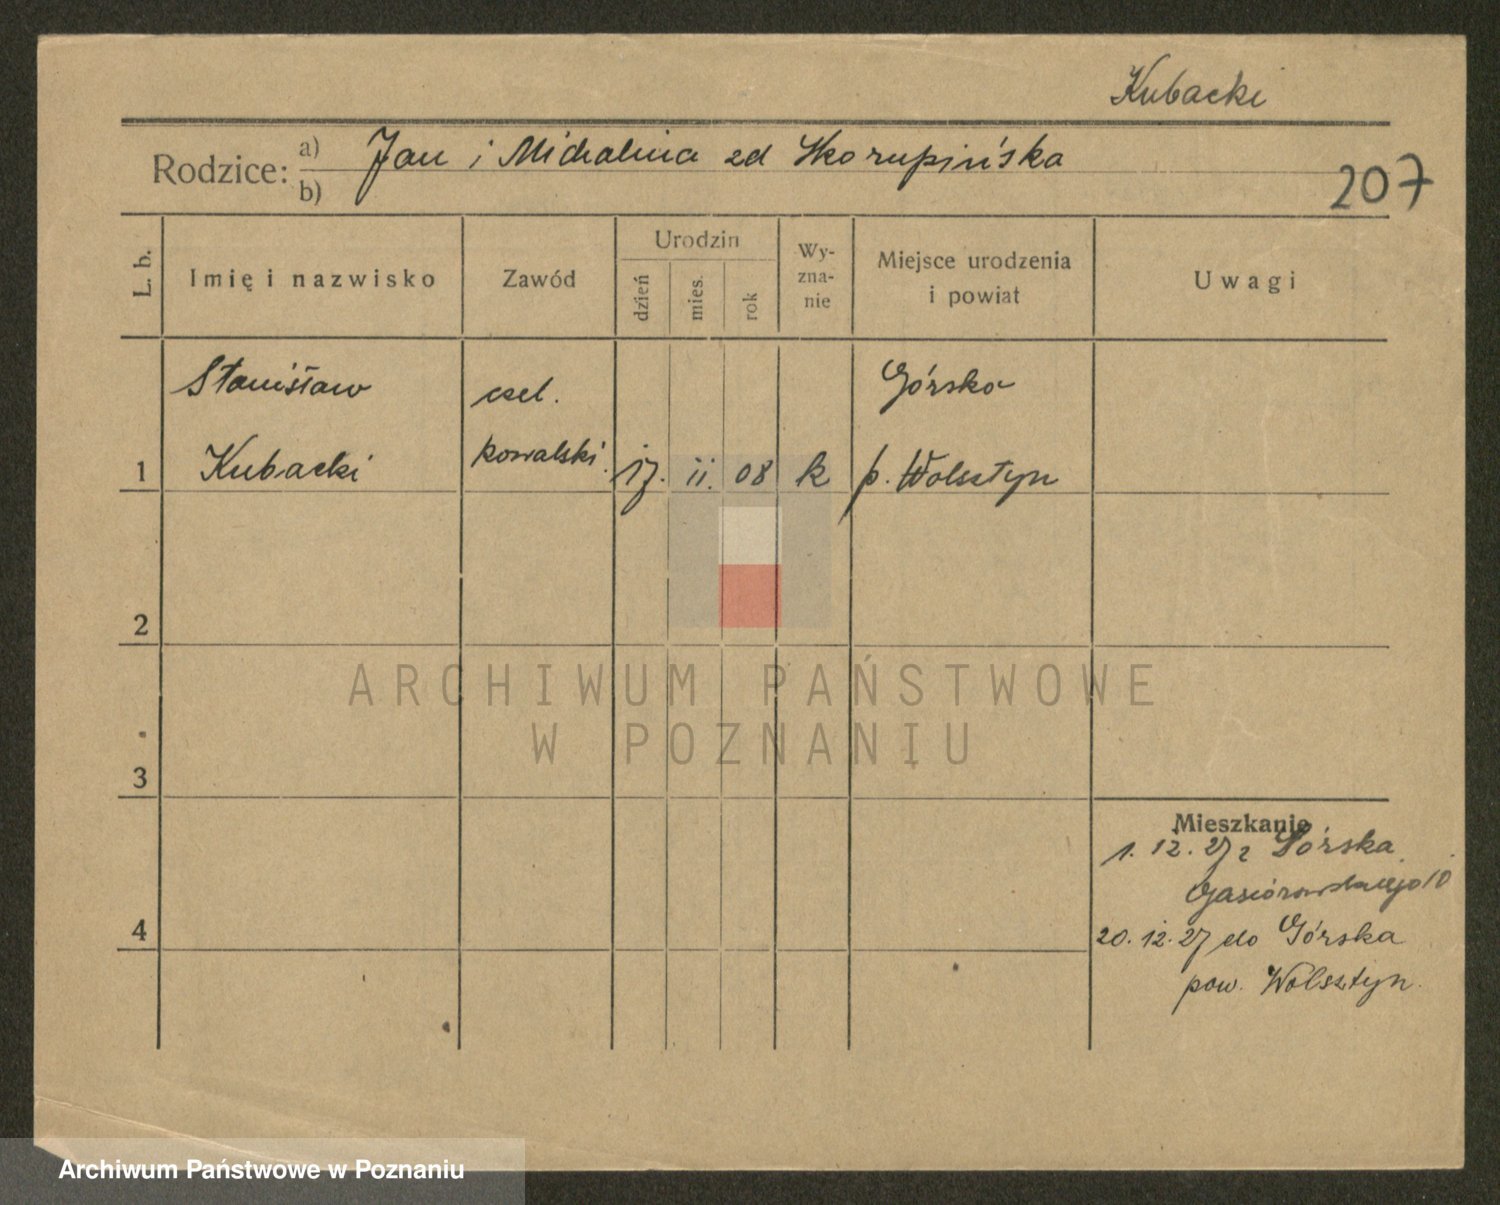 Kubacki
Rodzice: a) Jan i Michalina zd Skorupińska
b)
207
L. b.
Imię i nazwisko
Zawód
Urodzin
dzień
mies.
rok
Wy-
zna-
nie
Miejsce urodzenia
i powiat
Uwagi
Stanisław czel. Górska
1 Kubacki kowalski. 17. 11. 08 k p. Wolsztyn
2
ARCHIWUM PAŃSTWOWE
W POZNANIU
3
Mieszkanie
1. 12. 27 z Górska
Gąsiorowskiego 10
4
20. 12. 27 do Górska
pow. Wolsztyn.
Archiwum Państwowe w Poznaniu